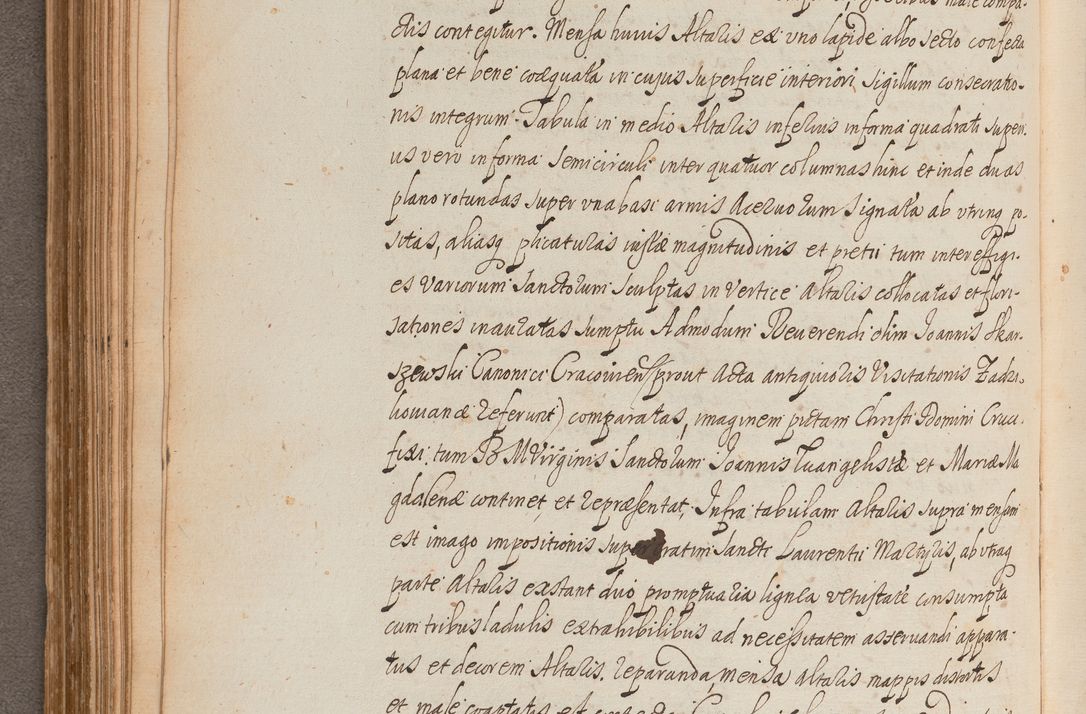 male compa-
ctis contegitur. Mensa huius Altaris ex vno lapide albo secto confecta
plana et bene coæquata in cujus superficie interiori sigillum consecratio-
nis integrum. Tabula in medio Altaris inferius in forma quadrati superi-
us vero in forma semicirculi inter quatuor columnas hinc et inde duas
plano rotundas super vna basi armis Acervorum signata ab vtrinq po-
sitas, aliasq plicaturas iustæ magnitudinis et pretii tum inter effigi-
es variorum Sanctorum sculptas in vertice Altaris collocatas et flori-
sationes inauratas sumptu Admodum Reverendi olim Joannis Skar-
szewski Canonici Cracovien (prout Acta antiquioris Visitationis Zadzi-
kowianæ referunt) comparatas, imaginem pictam Christi Domini Cruci-
fixi tum B M Virginis Sanctorum Joannis Evangelistæ et Mariæ Ma
gdalenæ continet, et repræsentat, Infra tabulam Altaris supra mensam
est imago impositionis super cratim Sancti Laurentii Martyris, ab vtraq
parte Altaris exstant duo promptuaria lignea vetustate consumpta
cum tribus ladulis extrahibilibus ad necessitatem asservandi appara-
tus et decorem Altaris. reparanda, mensa Altaris mappis distortis
et male coaptatis est